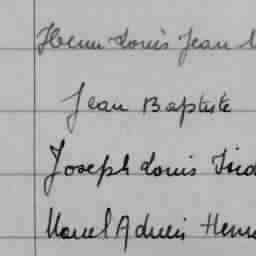 Henri Louis Jean
Jean Baptiste
Joseph Louis Isid
Marcel Adrien Henri